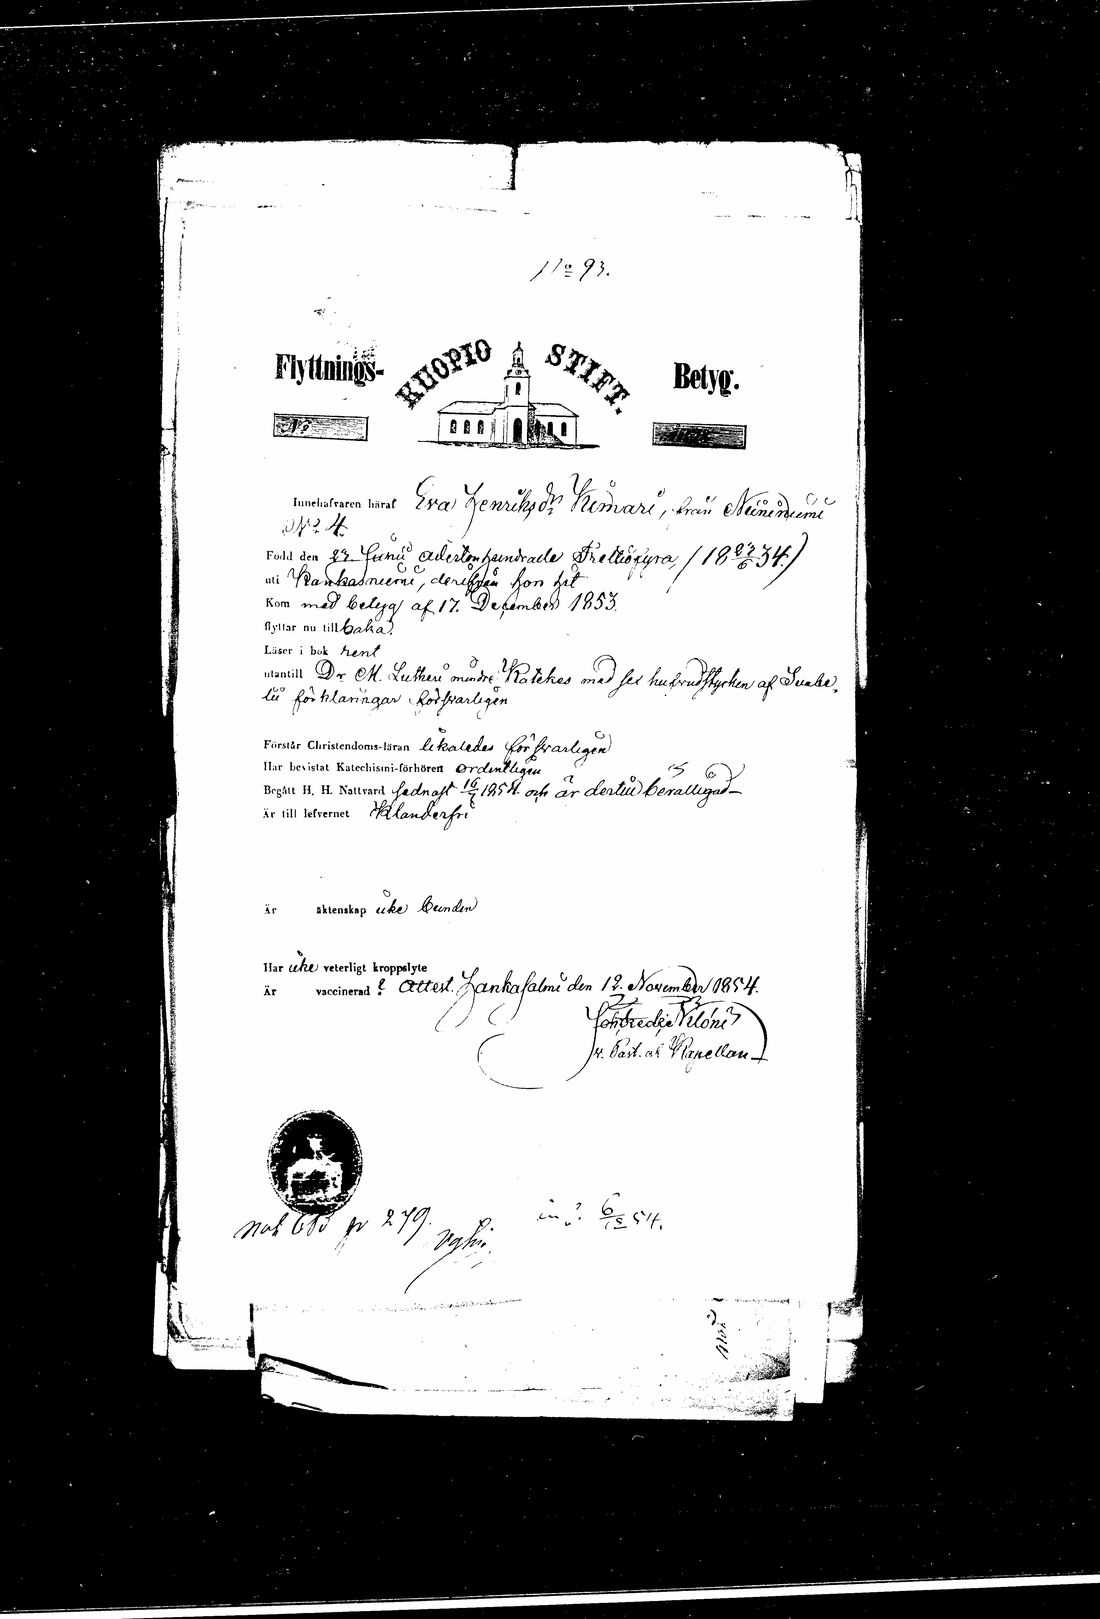 No 93.
Flyttnings- KUOPIO STIFT. Betyg.
No
Innehafvaren häraf Eva Henriksdr Kimari, från Neiniemi
No 4.
Född den 27. Junii adertonhundrade Trettiofyra, (18 27/6 34.)
uti Kankasniemi, derifrån hon hit
Kom med betyg af 17. December 1853.
flyttar nu tillbaka.
Läser i bok rent
utantill Dr. M. Lutheri mindre Katekes med sex hufvudstycken af Svebe-
lii förklaringar försvarligen
Förstår Christendoms-läran likaledes försvarligen
Har bevistat Katechismi-förhören ordentligen
Begått H. H. Nattvard sednast 16/7 1854 och är dertill berättigad
Är till lefvernet Klanderfri
Är äktenskap icke bunden
Har icke veterligt kroppslyte
Är vaccinerad? Attest. Hankasalmi den 12. November 1854.
Joh. Fredr. Kloni
v. Past. och Kapellan
279. in? 6/12 54.